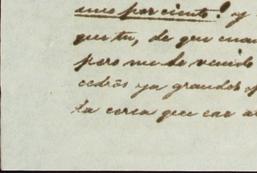 uno por ciento! y
que tu, de que cuan
pero me ha venido
cedros ya grandes
la cerca que cae a